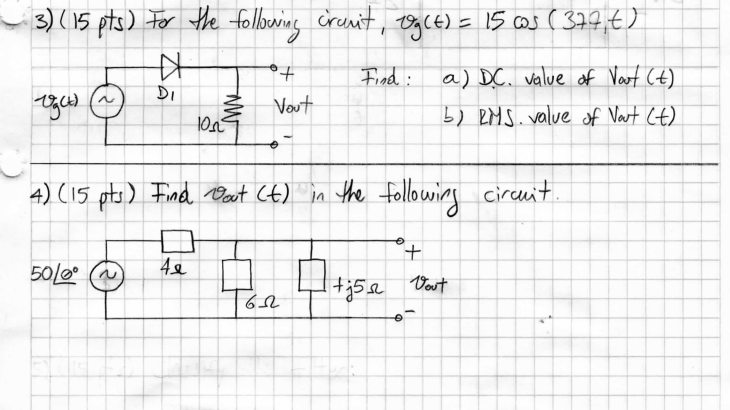 3) (15 pts) For the following circuit, vg(t) = 15 cos (377,t)
Find: a) D.C. value of Vout (t)
b) RMS. value of Vout (t)
vg(t)
D1
10Ω
+
Vout
-
4) (15 pts) Find vout (t) in the following circuit.
50/0°
4Ω
6Ω
+j5Ω
+
Vout
-